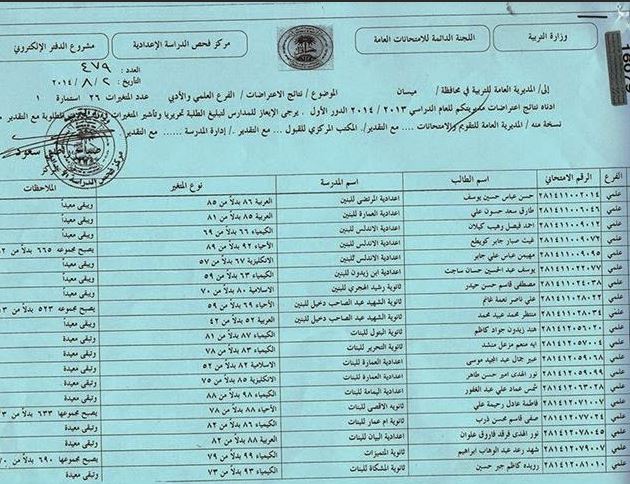 وزارة التربية
اللجنة الدائمة للامتحانات العامة
مركز فحص الدراسة الإعدادية
مشروع الدفتر الإلكتروني
العدد: ٤٧٩
التاريخ: ٢٠١٤/٨/٢
إلى/ المديرية العامة للتربية في محافظة/ ميسان الموضوع/ نتائج الاعتراضات/ الفرع العلمي والأدبي عدد المتغيرات ٢٦ استمارة ١
ادناه نتائج اعتراضات مديريتكم للعام الدراسي ٢٠١٣/٢٠١٤ الدور الأول . يرجى الإيعاز للمدارس لتبليغ الطلبة تحريريا وتأشير المتغيرات مع التقدير
نسخة منه/ المديرية العامة للتقويم والامتحانات ... مع التقدير/ المكتب المركزي للقبول ... مع التقدير/ إدارة المدرسة ...... مع التقدير
الفرع الرقم الامتحاني اسم الطالب اسم المدرسة نوع المتغير الملاحظات
علمي ٢٨١٤١١٠٠٢٠١٤ حسن عباس حسين يوسف اعدادية المرتضى للبنين العربية ٨٦ بدلاً من ٨٥ ويبقى معيداً
علمي ٢٨١٤١١٠٠٦٠٤٦ طارق سعد حسون علي اعدادية العمارة للبنين العربية ٨٥ بدلاً من ٨١ ويبقى معيداً
علمي ٢٨١٤١١٠٠٩٠٠٦ احمد فيصل وهيب كيلان اعدادية الاندلس للبنين الكيمياء ٦٦ بدلاً من ٦٩ ويبقى معيداً
علمي ٢٨١٤١١٠٠٩٠٧٢ غيث صبار جابر كويطع اعدادية الاندلس للبنين الأحياء ٩٢ بدلاً من ٨٩ يصبح مجموعه ٦٦٥ بدلاً من
علمي ٢٨١٤١١٠٠٩٠٩٥ مهيمن عباس علي جابر اعدادية الاندلس للبنين الانكليزية ٦٧ بدلاً من ٥٧ ويبقى معيداً
علمي ٢٨١٤١١٠٢٢٠٧٧ يوسف عبد الحسين حسان ساجت اعدادية ابن زيدون للبنين الكيمياء ٦٣ بدلاً من ٥٩ ويبقى معيداً
علمي ٢٨١٤١١٠٢٤٠٣٨ مصطفى قاسم حسن حيدر ثانوية رشيد الهجري للبنين الاسلامية ٨٠ بدلاً من ٧٠ ويبقى معيداً
علمي ٢٨١٤١١٠٢٨٠٢٢ علي ناصر نعمة غانم ثانوية الشهيد عبد الصاحب دخيل للبنين الأحياء ٦٩ بدلاً من ٥٩ يصبح مجموعه ٥٢٣ بدلاً من
علمي ٢٨١٤١١٠٢٨٠٣٤ منتظر محمد عبيد محمد ثانوية الشهيد عبد الصاحب دخيل للبنين العربية ٥٢ بدلاً من ٤٢ ويبقى معيداً
علمي ٢٨١٤١٢٠٥٦٠٢٠ هند زيدون جواد كاظم ثانوية البتول للبنات الكيمياء ٨٧ بدلاً من ٨١ وتبقى معيدة
علمي ٢٨١٤١٢٠٥٧٠٠٤ ايه منعم مزعل منشد ثانوية التحرير للبنات الكيمياء ٨٣ بدلاً من ٧٨ وتبقى معيدة
علمي ٢٨١٤١٢٠٥٩٠٦٨ عبير جمال عبد المجيد موسى اعدادية العمارة للبنات الاسلامية ٨٢ بدلاً من ٥٢ وتبقى معيدة
علمي ٢٨١٤١٢٠٥٩٠٩٩ نور الهدى امير حسن طاهر اعدادية العمارة للبنات الانكليزية ٨٥ بدلاً من ٧٥ وتبقى معيدة
علمي ٢٨١٤١٢٠٦٣٠٢٨ شمس عماد علي عبد الغفور اعدادية اليمامة للبنات الكيمياء ٩٨ بدلاً من ٨٨ وتبقى معيدة
علمي ٢٨١٤١٢٠٧١٠٠٧ فاطمة عادل رحيمة علي ثانوية الاقصى للبنات الأحياء ٨٨ بدلاً من ٧٨ يصبح مجموعها ٦٣٣ بدلاً من
علمي ٢٨١٤١٢٠٧٧٠٢٤ صفى قاسم محسن ذرب ثانوية ام عمار للبنات الكيمياء ٨٨ بدلاً من ٨٢ وتبقى معيدة
علمي ٢٨١٤١٢٠٧٨٠٤٥ نور الهدى فرقد فاروق علوان اعدادية البيان للبنات العربية ٨٨ بدلاً من ٨٢ وتبقى معيدة
علمي ٢٨١٤١٢٠٧٩٠٠٧ شهد رعد عبد الوهاب ابراهيم ثانوية المتميزات الكيمياء ٩٩ بدلاً من ٧٩ يصبح مجموعها ٦٩٠ بدلاً من
علمي ٢٨١٤١٢٠٨١٠١٠ رويده كاظم جبر حسين ثانوية المشكاة للبنات الكيمياء ٩٣ بدلاً من ٧٣ وتبقى معيدة